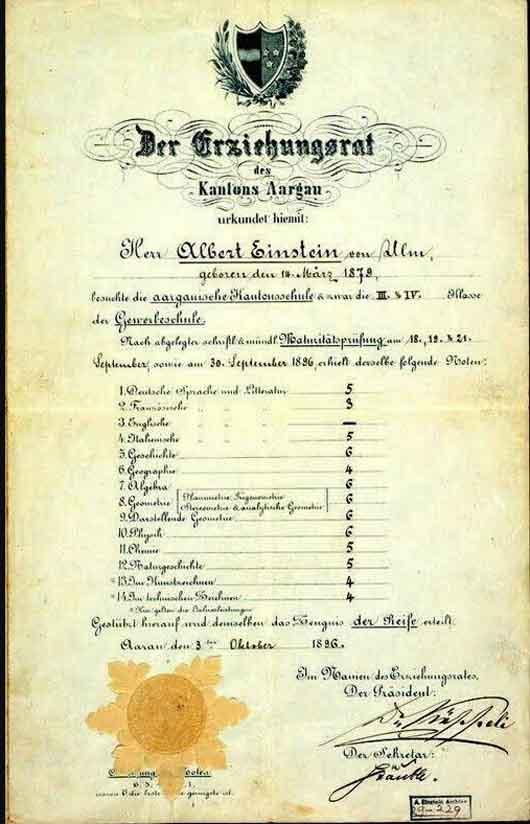 Der Erziehungsrat
des
Kantons Aargau
urkundet hiemit:
Herr Albert Einstein von Ulm,
geboren den 14. März 1879,
besuchte die aargauische Kantonsschule & zwar die III. & IV. Klasse
der Gewerbeschule.
Nach abgelegter schriftl. & mündl. Maturitätsprüfung am 18., 19. & 21.
September, sowie am 30. September 1896, erhielt derselbe folgende Noten:
1. Deutsche Sprache und Litteratur 5
2. Französische " " " 3
3. Englische " " " —
4. Italienische " " " 5
5. Geschichte 6
6. Geographie 4
7. Algebra 6
8. Geometrie Planimetrie, Trigonometrie 6
Stereometrie & analytische Geometrie
9. Darstellende Geometrie 6
10. Physik 6
11. Chemie 5
12. Naturgeschichte 5
*13. Im Kunstzeichnen 4
*14. Im technischen Zeichnen 4
* Hier gelten die Jahresleistungen
Gestützt hierauf wird demselben das Zeugnis der Reife erteilt.
Aarau den 3ten Oktober 1896.
Im Namen des Erziehungsrates,
Der Präsident:
Der Sekretär:
6. 5. 1.
wovon 6 die beste geringste ist.
A. Einstein Archive
29-229